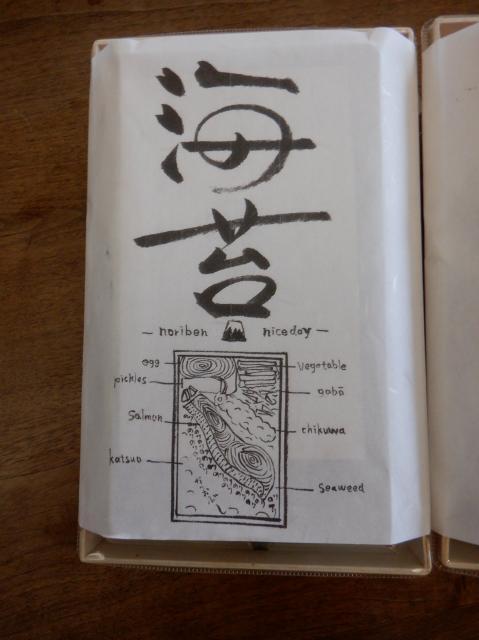 海
苔
— noriben niceday —
egg
vegetable
pickles
gobō
Salmon
chikuwa
katsuo
Seaweed